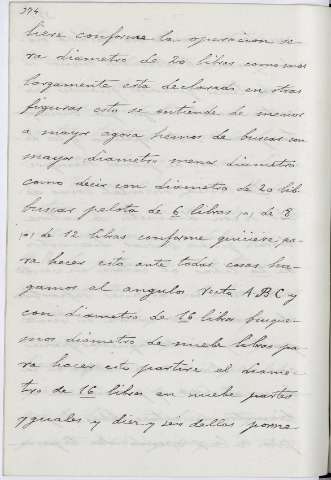 374
liere conforme la operacion se-
ra diametro de 20 libras como mas
largamente esta declarado en otras
figuras esto se entiende de menor
a mayor agora hemos de buscar con
mayor diametro menor diametro
como decir con diametro de 20 lib.
buscar pelota de 6 libras, |o| de 8
|o| de 12 libras conforme quisiere, pa-
ra hacer esto ante todas cosas ha-
gamos al angulos recto A-B-C y
con diametro de 16 libras busque-
mos diametro de nuebe libras pa-
ra hacer esto partire el diame-
tro de 16 libras en nuebe partes
yguales y diez y seis dellas pome